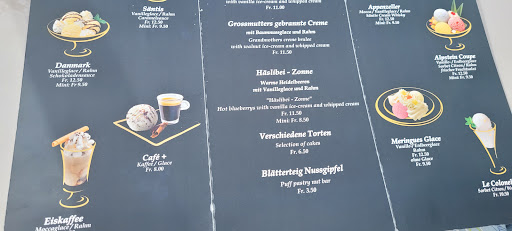 Säntis
Vanilleglace / Rahm
Caramelsauce
Fr. 12.50
Mini: Fr 9.50
Danmark
Vanilleglace / Rahm
Schokoladensauce
Fr. 12.50
Mini: Fr 9.50
Café +
Kaffee / Glace
Fr. 8.00
Eiskaffee
Moccaglace / Rahm
with vanilla ice-cream and whipped cream
Fr. 12.00
Grossmutters gebrannte Creme
mit Baumnussglace und Rahm
Grandmothers creme brulee
with walnut ice-cream and whipped cream
Fr. 11.50
Häslibei - Zonne
Warme Heidelbeeren
mit Vanilleglace und Rahm
"Häslibei - Zonne"
Hot blueberrys with vanilla ice-cream and whipped cream
Fr. 11.50
Mini: Fr. 8.50
Verschiedene Torten
Selection of cakes
Fr. 6.50
Blätterteig Nussgipfel
Puff pastry nut bar
Fr. 3.50
Appenzeller
Fr. 12.50
Mini: Fr. 9.50
Alpstein Coupe
Vanille- / Erdbeerglace
Sorbet Citron / Rahm
frischer Fruchtsalat
Fr. 12.50
Mini: Fr. 9.50
Meringues Glace
Vanille / Erdbeerglace
Rahm
Fr. 12.50
ohne Glace
Fr. 9.50
Le Colonel
Sorbet Citron /
Fr. 10.50